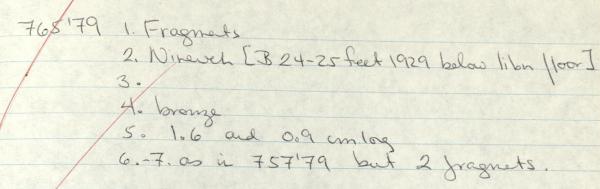 765'79 1. Fragmets
2. Nineveh [B 24-25 feet 1929 below libn floor]
3.
4. bronze
5. 1.6 and 0.9 cm. log
6.-7. as in 757'79 but 2 fragnets.